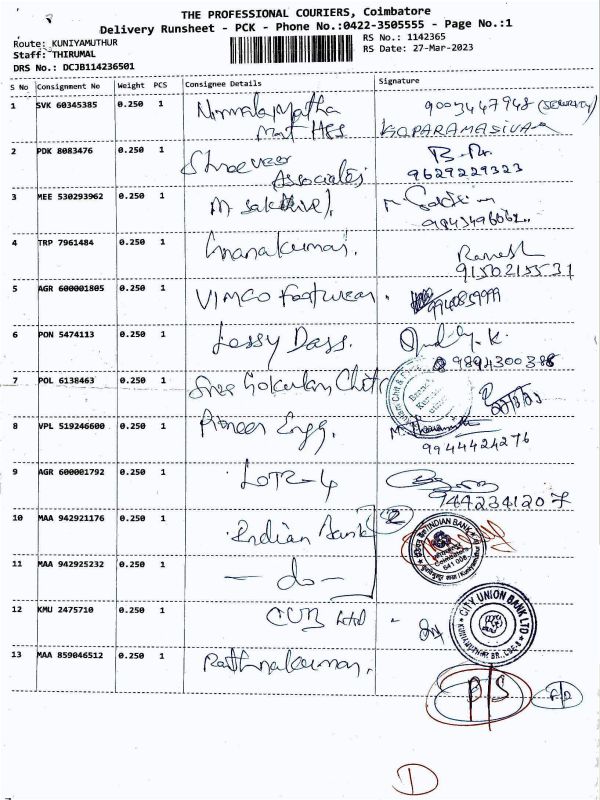 THE PROFESSIONAL COURIERS, Coimbatore
Delivery Runsheet - PCK - Phone No.:0422-3505555 - Page No.:1
Route: KUNIYAMUTHUR
RS No.: 1142365
Staff: THIRUMAL
RS Date: 27-Mar-2023
DRS No.: DCJB114236501
S No Consignment No Weight PCS Consignee Details Signature
1 SVK 60345385 0.250 1 Nirmala Matha 9003447948
Mat HSS K.O PARAMASIVAM
2 PDK 8083476 0.250 1 Shreeveer
Associates 9629229323
3 MEE 530293962 0.250 1 M Sakthivel.
4 TRP 7961484 0.250 1 Gnanakumar. Ramesh
9150215531
5 AGR 600001805 0.250 1 VIMCO Footwear.
9940859999
6 PON 5474113 0.250 1 Lessy Dass.
7 POL 6138463 0.250 1 Sree Gokulam Chit
8 VPL 519246600 0.250 1 Pioneer Engg.
9944424276
9 AGR 600001792 0.250 1
9442341207
10 MAA 942921176 0.250 1 Indian Bank 2
INDIAN BANK
641 008
11 MAA 942925232 0.250 1 - do -
12 KMU 2475710 0.250 1 CUB Ltd
CITY UNION BANK LTD
13 MAA 859046512 0.250 1 Rathnakumar.